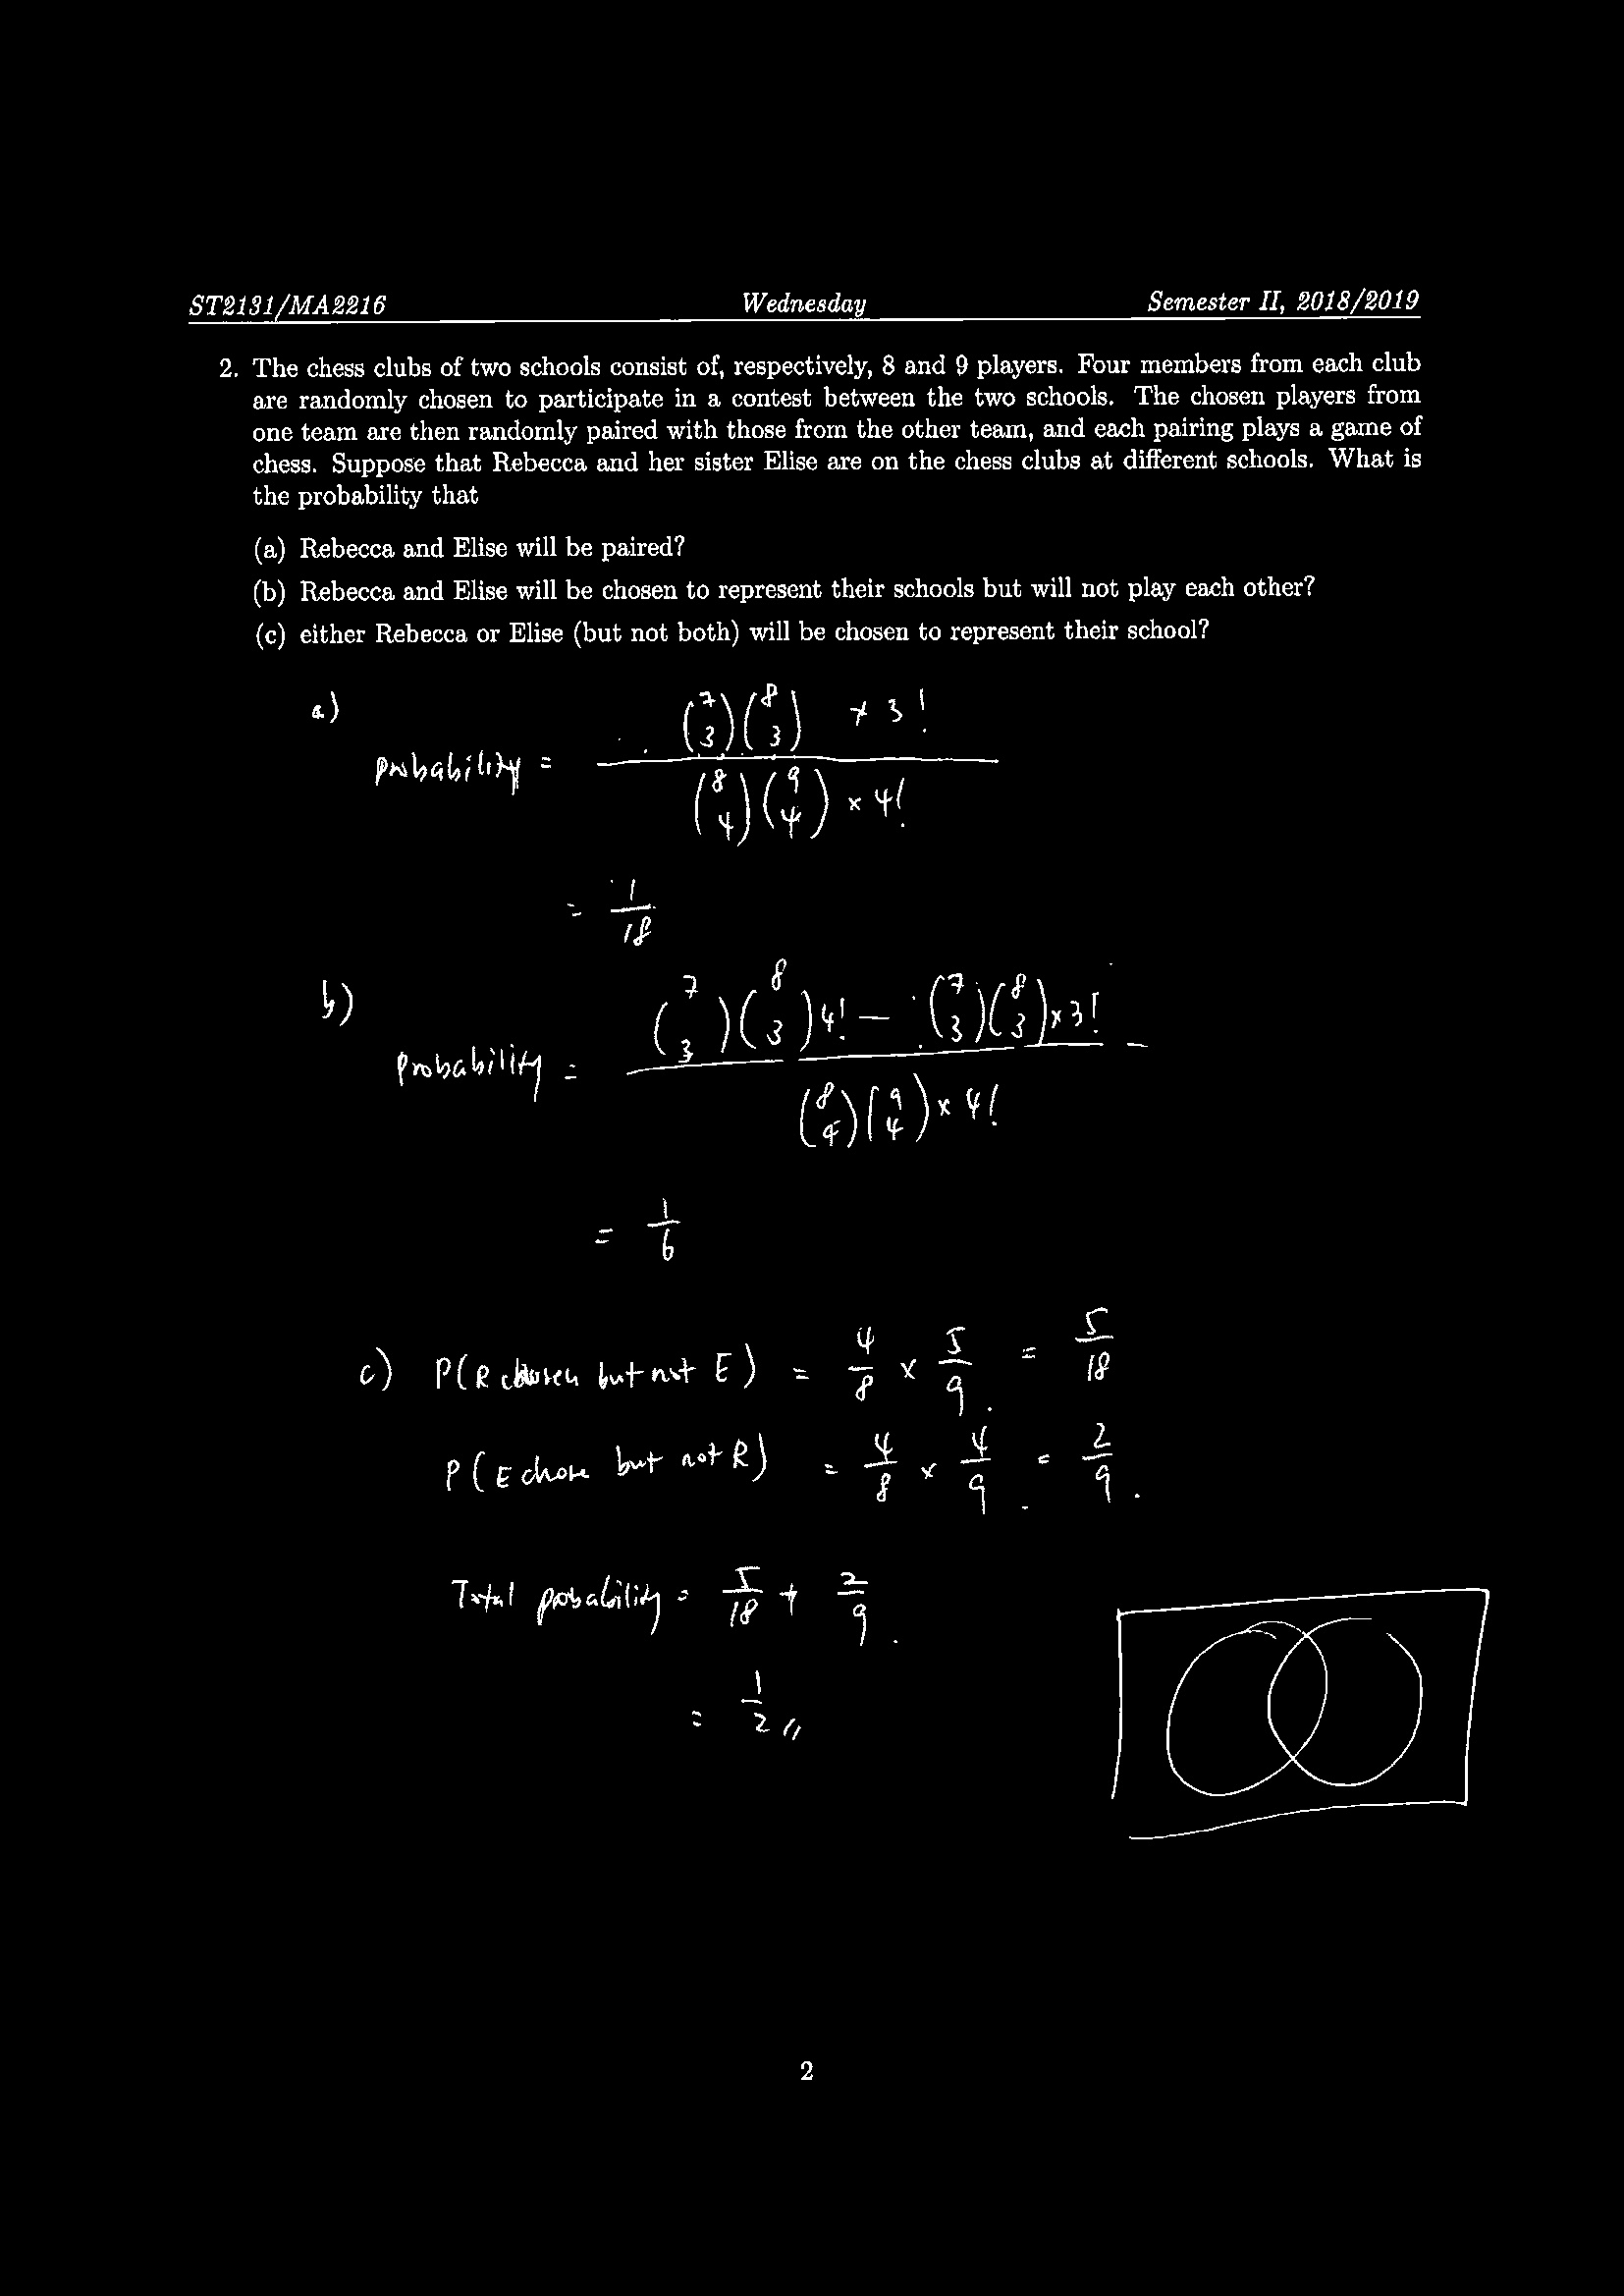 ST2131/MA2216 Wednesday Semester II, 2018/2019
2. The chess clubs of two schools consist of, respectively, 8 and 9 players. Four members from each club
are randomly chosen to participate in a contest between the two schools. The chosen players from
one team are then randomly paired with those from the other team, and each pairing plays a game of
chess. Suppose that Rebecca and her sister Elise are on the chess clubs at different schools. What is
the probability that
(a) Rebecca and Elise will be paired?
(b) Rebecca and Elise will be chosen to represent their schools but will not play each other?
(c) either Rebecca or Elise (but not both) will be chosen to represent their school?
a)
probability = \frac{\binom{7}{3}\binom{8}{3} × 3!}{\binom{8}{4}\binom{9}{4} × 4!}
= \frac{1}{18}
b)
Probability = \frac{\binom{7}{3}\binom{8}{3}4! - \binom{7}{3}\binom{8}{3} × 3!}{\binom{8}{4}\binom{9}{4} × 4!}
= \frac{1}{6}
c) P(R chosen but not E) = \frac{4}{8} × \frac{5}{9} = \frac{5}{18}
P(E chose but not R) = \frac{4}{8} × \frac{4}{9} = \frac{2}{9}.
Total probability = \frac{5}{18} + \frac{2}{9}.
= \frac{1}{2} //
2